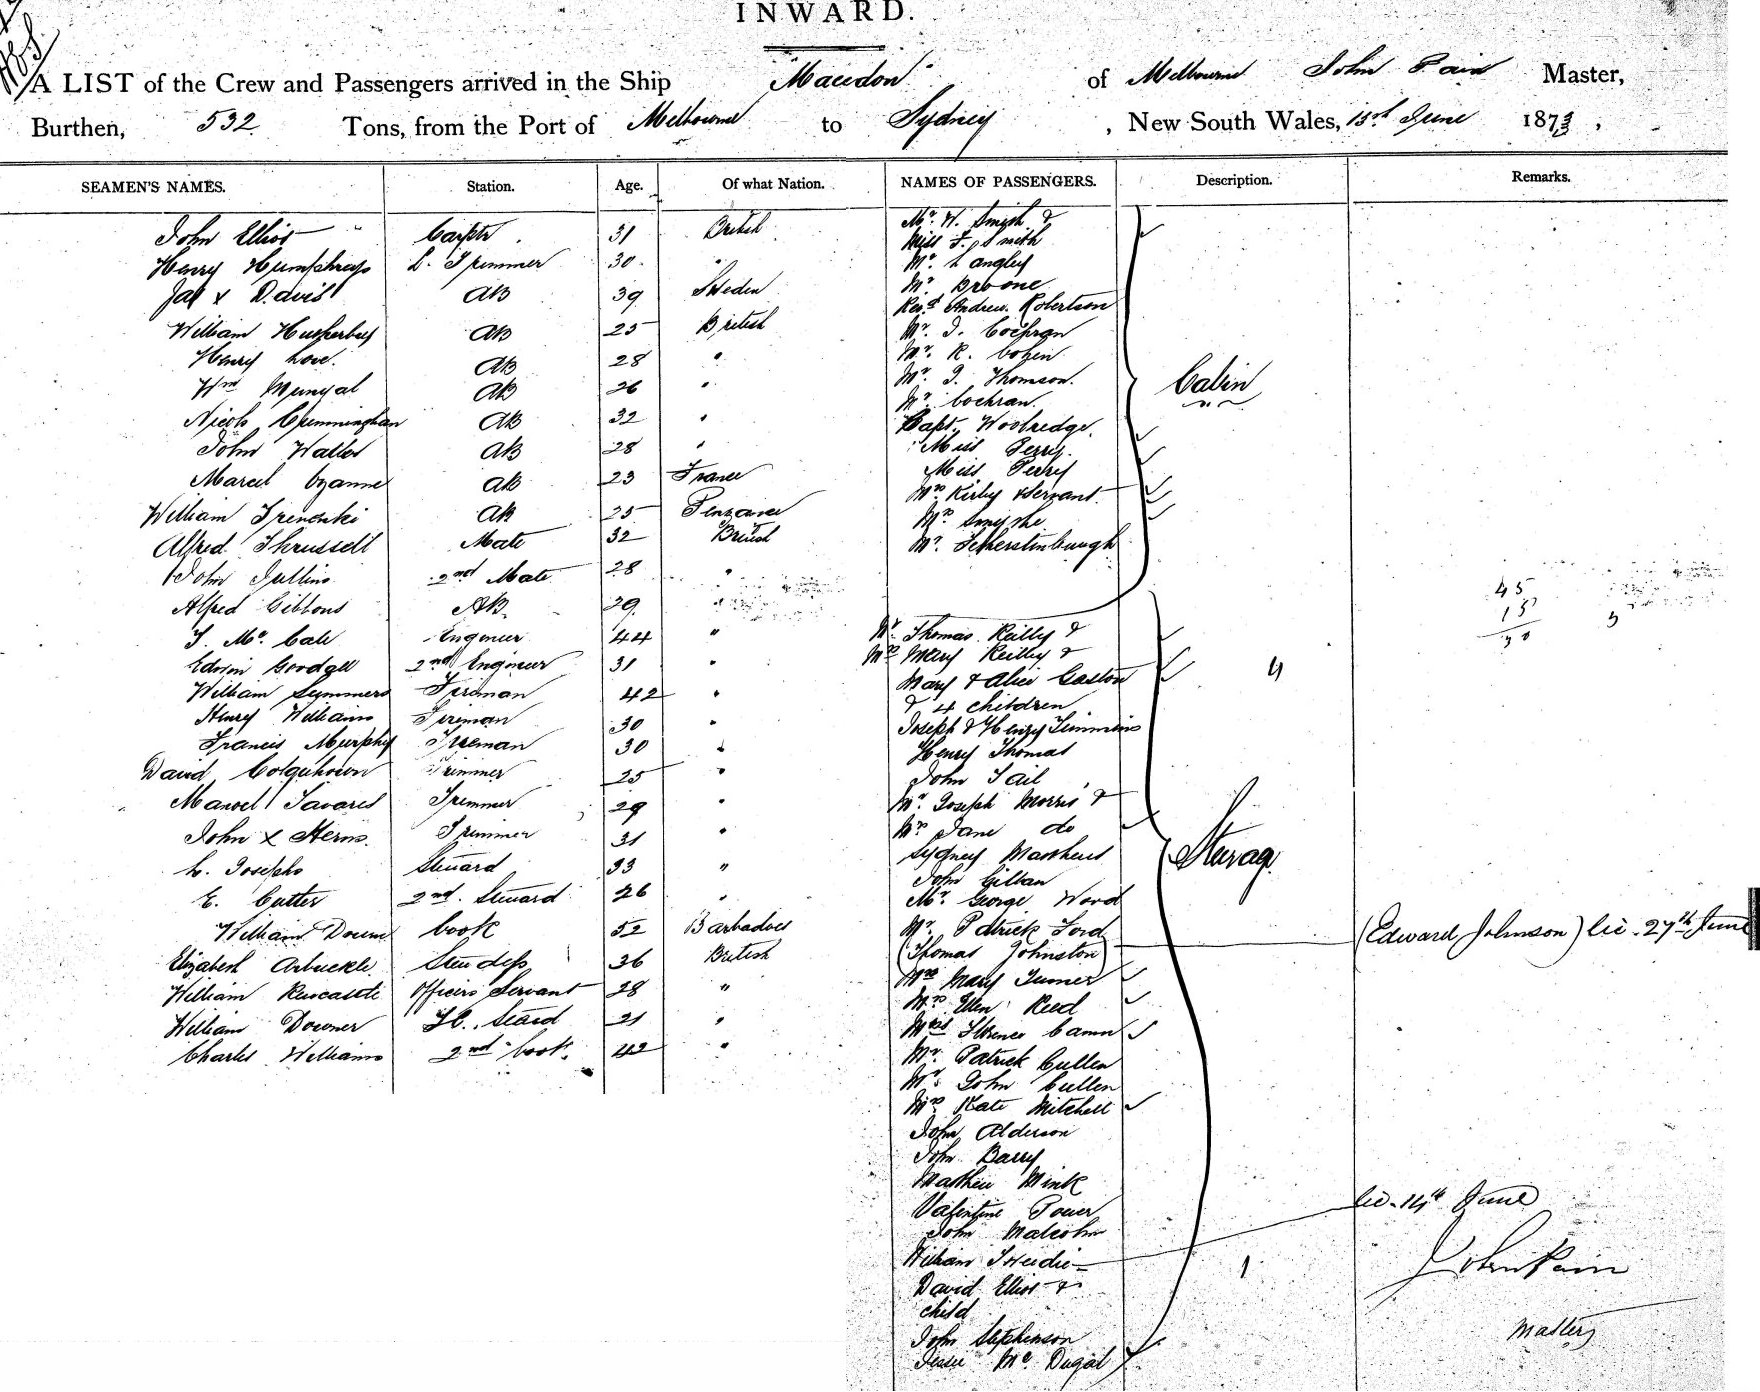 INWARD.
A LIST of the Crew and Passengers arrived in the Ship Macedon of Melbourne John Pain Master,
Burthen, 532 Tons, from the Port of Melbourne to Sydney, New South Wales, 15th June 1873,
SEAMEN'S NAMES. Station. Age. Of what Nation.
John Elliot Carptr 31 British
Henry Humphreys L. Trimmer 30 "
Jas x Davis AB 39 Sweden
William AB 25 British
Henry Love. AB 28 "
Wm Mungal AB 26 "
Nicols Cunningham AB 32 "
John Waller AB 28 "
Marcel AB 23 France
William AB 25 Penzance
Alfred Thrussell Mate 32 British
John Jullins 2nd Mate 28 "
Alfred Gibbons AB. 29 "
J. Mc Cale Engineer 44 "
Edwin Goodger 2nd Engineer 31 "
William Symmers Fireman 42 "
Henry Williams Fireman 30 "
Francis Murphy Fireman 30 "
David Colquhoun Trimmer 25 "
Manoel Tavares Trimmer 29 "
John x Herns. Trimmer 31 "
L. Josephs Steuard 33 "
E. Cutter 2nd. Steuard 26 "
William Cook 52 Barbadoes
Elizabeth Arbuckle Stewdess 36 British
William Ruscastle Officers Servant 28 "
William Downer 21 "
Charles Williams 2nd Cook. 42 "
NAMES OF PASSENGERS. Description. Remarks.
Mr. W. Smith &
Miss F. Smith
Mr. Langley
Mr Broone
Revd Andrew Robertson
Mr. J. Cochran
Mr. R. Cohen
Mr. J. Thomson.
Mr. Cochran.
Capt. Woolredge.
Miss Perry.
Miss Perry
Mrs Kirby & Servant
Mrs Smythe
Mr. Fetherstinhaugh
Cabin
45
15
30
Mr. Thomas Reilly &
Mrs Mary Reilly &
Mary & Alice Gaston
& 4 children
Joseph & Henry Timmins
Henry Thomas
John Tail
Mr. Joseph Morris &
Mrs Jane do
Sydney Matthews
John Gillan
Mr. George Ward
Mr. Patrick Ford
(Thomas Johnston) (Edward Johnson) lie. 27th June
Mrs Mary Turner
Mrs Ellen Reed
Miss Florence Camn
Mr. Patrick Cullen
Mr. John Cullen
Mrs Kate Mitchell
John Alderson
John Barry
Matthew Mink
Valentine Power
John Malcolm
William lie. 14th June
David Elliot &
child
John Stephenson
Jessie Mc Dugal
Steerag
4
1
John Pain
Master